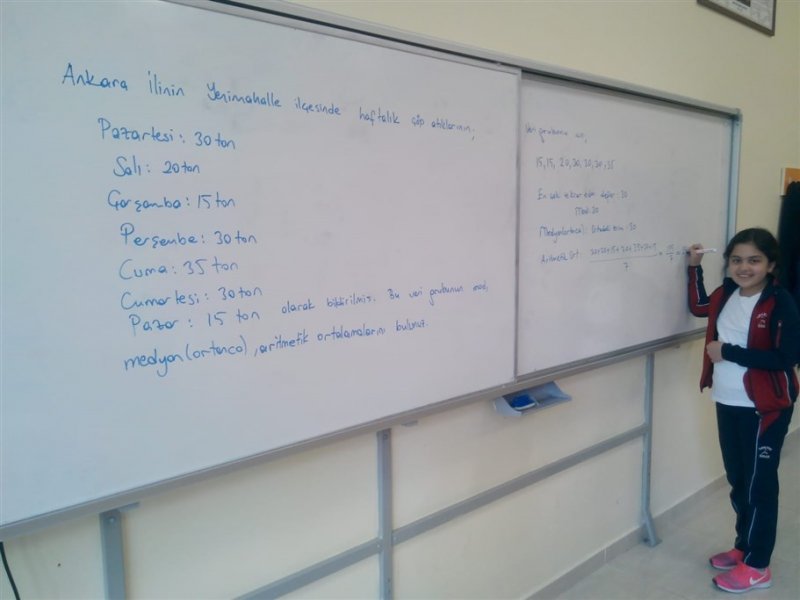 Ankara İlinin Yenimahalle ilçesinde haftalık çöp atıklarının;
Pazartesi: 30 ton
Salı: 20 ton
Çarşamba: 15 ton
Perşembe: 30 ton
Cuma: 35 ton
Cumartesi: 30 ton
Pazar: 15 ton olarak bildirilmiş. Bu veri grubunun mod,
medyan(ortanca), aritmetik ortalamalarını bulunuz.
Veri grubunun
15, 15, 20, 30, 30, 30, 35
En çok tekrar eden değer: 30
Mod: 30
Medyan(ortanca): Ortadaki terim: 30
Aritmetik Ort:
7